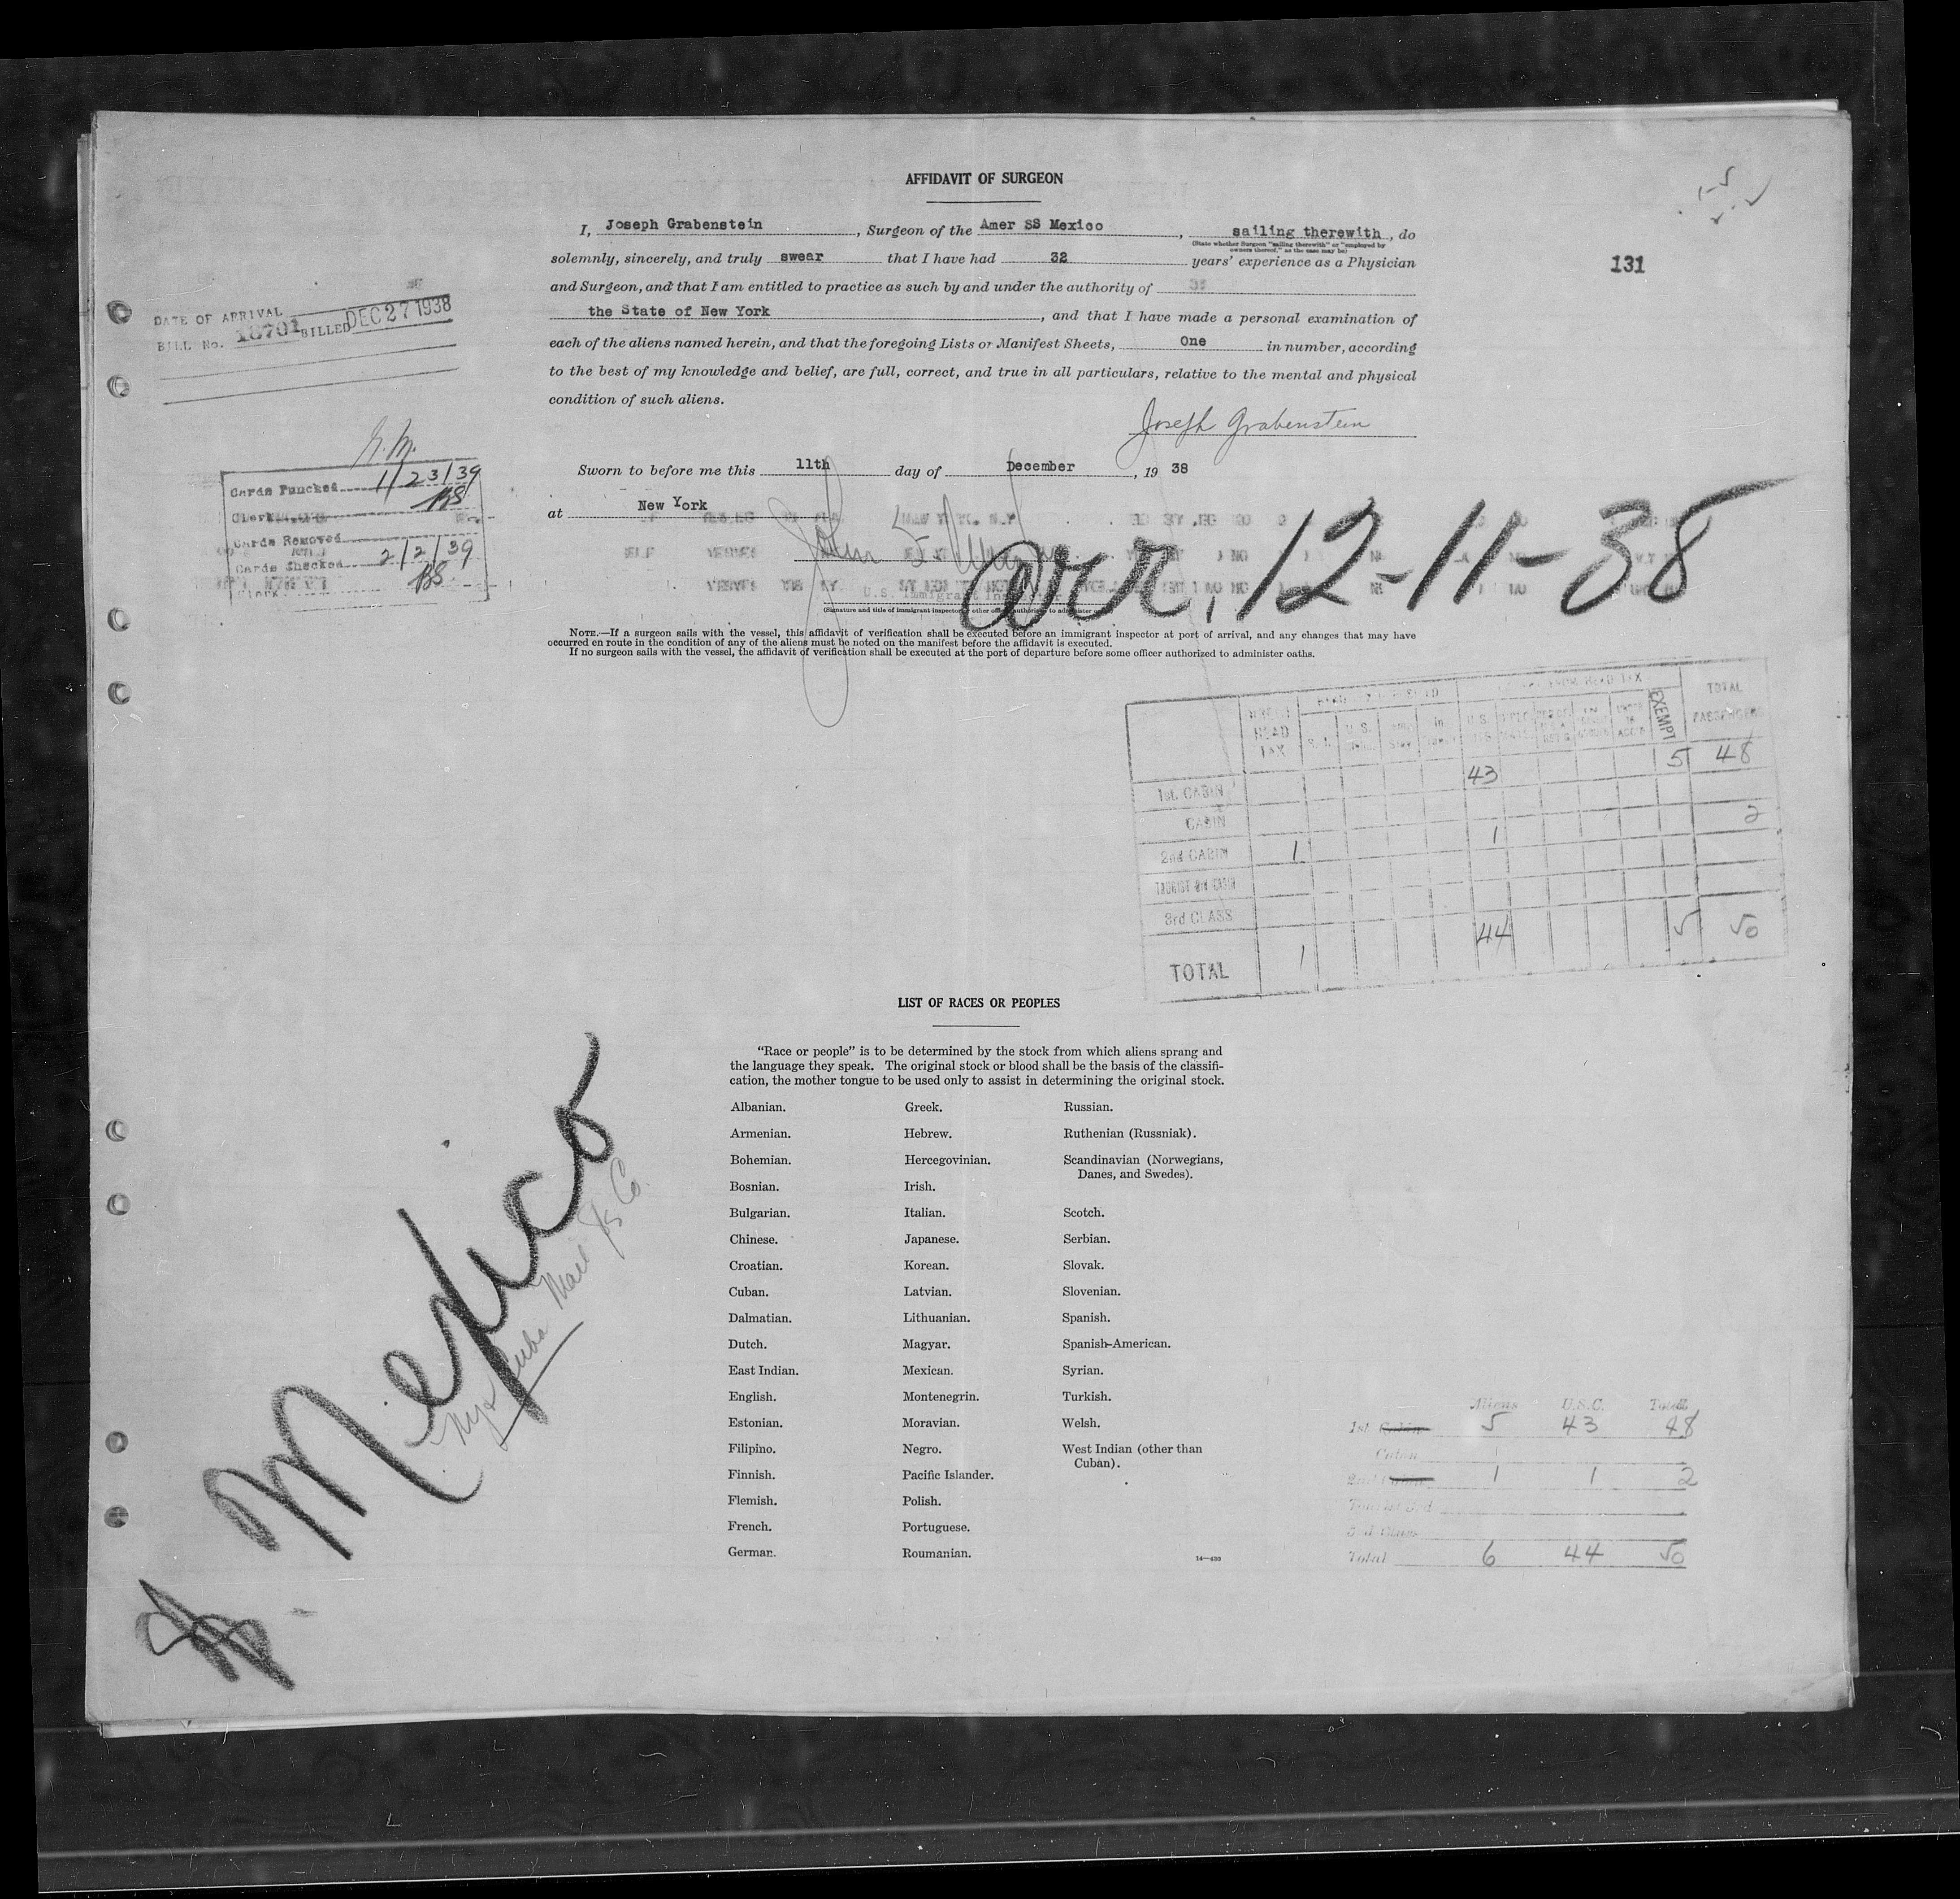 AFFIDAVIT OF SURGEON
131
I, Joseph Grabenstein, Surgeon of the Amer SS Mexico, sailing therewith, do
(State whether Surgeon "sailing therewith" or "employed by
owners thereof," as the case may be)
solemnly, sincerely, and truly swear that I have had 32 years' experience as a Physician
and Surgeon, and that I am entitled to practice as such by and under the authority of
the State of New York, and that I have made a personal examination of
each of the aliens named herein, and that the foregoing Lists or Manifest Sheets, One in number, according
to the best of my knowledge and belief, are full, correct, and true in all particulars, relative to the mental and physical
condition of such aliens.
Joseph Grabenstein
Sworn to before me this 11th day of December, 19 38
at New York
DATE OF ARRIVAL
BILL No. 18701 BILLED DEC 27 1938
Cards Punched 1/23/39
Clerk BS
Cards Removed
Cards Checked 2/2/39
Clerk BS
arr. 12-11-38
U.S. Immigrant Inspector
(Signature and title of immigrant inspector or other officer authorized to administer
NOTE.—If a surgeon sails with the vessel, this affidavit of verification shall be executed before an immigrant inspector at port of arrival, and any changes that may have
occurred en route in the condition of any of the aliens must be noted on the manifest before the affidavit is executed.
If no surgeon sails with the vessel, the affidavit of verification shall be executed at the port of departure before some officer authorized to administer oaths.
HEAD TAX
EXEMPT
TOTAL PASSENGERS
1st. CABIN 43 5 48
CABIN
2nd CABIN 1 1 2
TOURIST 3rd CABIN
3rd CLASS
TOTAL 1 44 5 50
LIST OF RACES OR PEOPLES
"Race or people" is to be determined by the stock from which aliens sprang and
the language they speak. The original stock or blood shall be the basis of the classifi-
cation, the mother tongue to be used only to assist in determining the original stock.
Albanian.
Armenian.
Bohemian.
Bosnian.
Bulgarian.
Chinese.
Croatian.
Cuban.
Dalmatian.
Dutch.
East Indian.
English.
Estonian.
Filipino.
Finnish.
Flemish.
French.
German.
Greek.
Hebrew.
Hercegovinian.
Irish.
Italian.
Japanese.
Korean.
Latvian.
Lithuanian.
Magyar.
Mexican.
Montenegrin.
Moravian.
Negro.
Pacific Islander.
Polish.
Portuguese.
Roumanian.
Russian.
Ruthenian (Russniak).
Scandinavian (Norwegians,
Danes, and Swedes).
Scotch.
Serbian.
Slovak.
Slovenian.
Spanish.
Spanish-American.
Syrian.
Turkish.
Welsh.
West Indian (other than
Cuban).
14—430
Mexico
NY & Cuba Mail SS Co.
Aliens U.S.C. Total
1st Cabin 5 43 48
Cabin
2nd Cabin 1 1 2
Tourist 3rd
3rd Class
Total 6 44 50